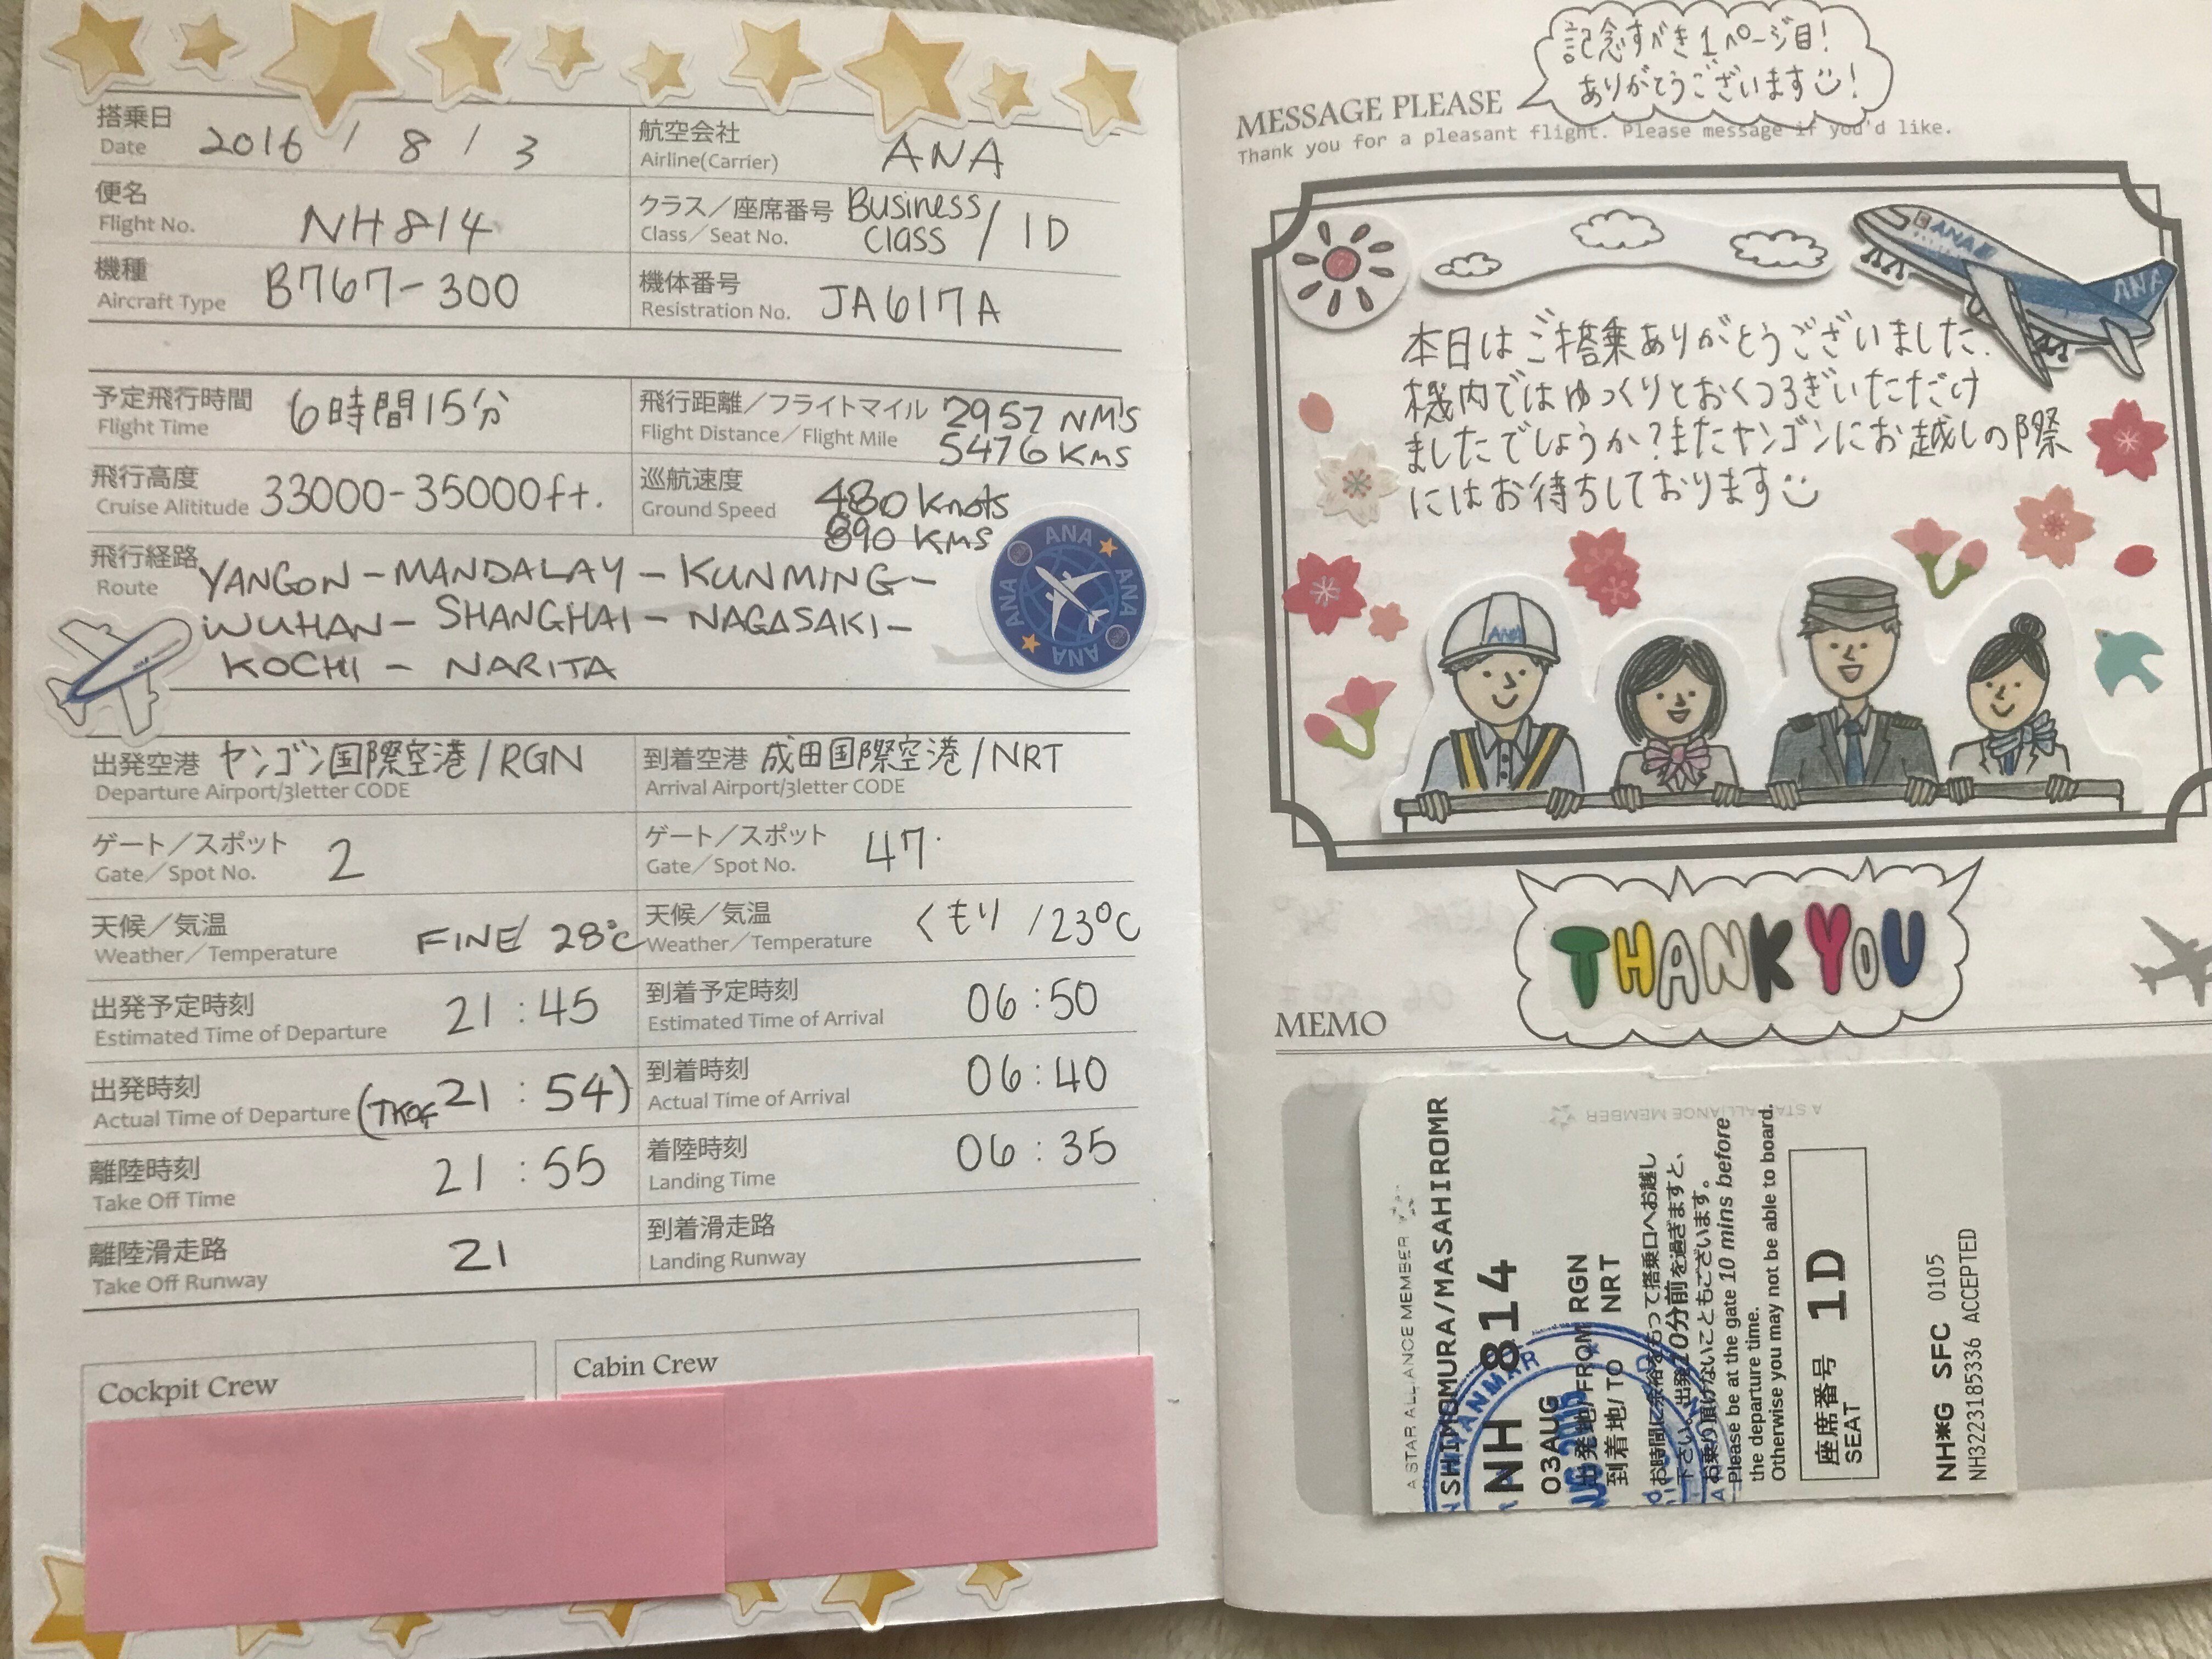 搭乗日
Date
2016 / 8 / 3
航空会社
Airline(Carrier)
ANA
便名
Flight No.
NH814
クラス／座席番号
Class／Seat No.
Business class / 1D
機種
Aircraft Type
B767-300
機体番号
Resistration No.
JA617A
予定飛行時間
Flight Time
6時間15分
飛行距離／フライトマイル
Flight Distance／Flight Mile
2957 NM'S
5476 KMS
飛行高度
Cruise Alititude
33000-35000ft.
巡航速度
Ground Speed
480 Knots
890 KMS
飛行経路
Route
YANGON - MANDALAY - KUNMING -
WUHAN - SHANGHAI - NAGASAKI -
KOCHI - NARITA
ANA
ANA
ANA
ANA
出発空港
Departure Airport/3letter CODE
ヤンゴン国際空港/RGN
到着空港
Arrival Airport/3letter CODE
成田国際空港/NRT
ゲート／スポット
Gate／Spot No.
2
ゲート／スポット
Gate／Spot No.
47
天候／気温
Weather／Temperature
FINE/ 28℃
天候／気温
Weather／Temperature
くもり /23℃
出発予定時刻
Estimated Time of Departure
21:45
到着予定時刻
Estimated Time of Arrival
06:50
出発時刻
Actual Time of Departure
(TKOF 21:54)
到着時刻
Actual Time of Arrival
06:40
離陸時刻
Take Off Time
21:55
着陸時刻
Landing Time
06:35
離陸滑走路
Take Off Runway
21
到着滑走路
Landing Runway
Cockpit Crew
Cabin Crew
記念すべき1ページ目!
ありがとうございます!
MESSAGE PLEASE
Thank you for a pleasant flight. Please message if you'd like.
ANA
ANA
本日はご搭乗ありがとうございました.
機内ではゆっくりとおくつろぎいただけ
ましたでしょうか?またヤンゴンにお越しの際
にはお待ちしております
ANA
THANK YOU
MEMO
A STAR ALLIANCE MEMBER
A STAR ALLIANCE MEMBER
SHIMOMURA/MASAHIROMR
NH 814
03AUG
出発地/FROM RGN
到着地/ TO NRT
お時間に余裕をもって搭乗口へお越し
下さい。出発10分前を過ぎますと、
お乗り頂けないこともございます。
Please be at the gate 10 mins before
the departure time.
Otherwise you may not be able to board.
座席番号 1D
SEAT
NH*G SFC 0105
NH3223185336 ACCEPTED
MYANMAR